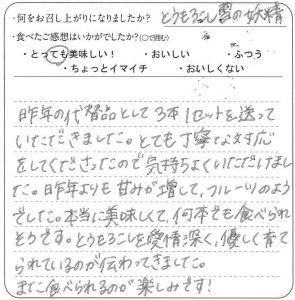 ・何をお召し上がりになりましたか？ とうもろこし雪の妖精
・食べたご感想はいかがでしたか？（○で囲む）
・とっても美味しい！ ・おいしい ・ふつう
・ちょっとイマイチ ・おいしくない
昨年の代替品として3本1セットを送って
いただきました。とても丁寧な対応
をしてくださったので気持ちよくいただけまし
た。昨年よりも甘みが増して、フルーツのよう
でした。本当に美味しくて、何本でも食べられ
そうです。とうもろこしを愛情深く、優しく育て
られているのが伝わってきました。
また食べられるのが楽しみです！